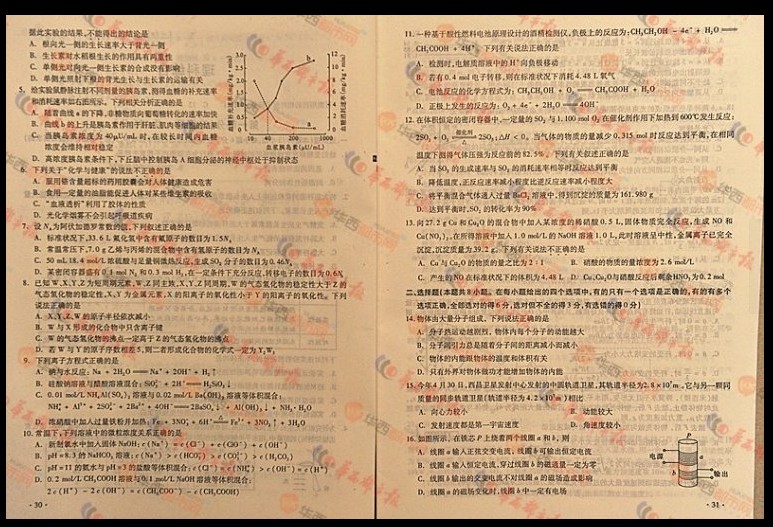 据此实验的结果,不能得出的结论是
A. 根向光一侧的生长速率大于背光一侧
B. 生长素对水稻根生长的作用具有两重性
C. 单侧光对向光一侧生长素的合成没有影响
D. 单侧光照射下根的背光生长与生长素的运输有关
5. 给实验鼠静脉注射不同剂量的胰岛素,测得血糖的补充速率
和消耗速率如右图所示。下列相关分析正确的是
A. 随着曲线a的下降,非糖物质向葡萄糖转化的速率加快
B. 曲线b的上升是胰岛素作用于肝脏、肌肉等细胞的结果
C. 当胰岛素浓度为40μU/mL时,在较长时间内血糖
浓度会维持相对稳定
D. 高浓度胰岛素条件下,下丘脑中控制胰岛A细胞分泌的神经中枢处于抑制状态
血糖补充速率(mg/kg·min)
3.0
2.5
2.0
1.5
1.0
0.5
0
12
10
8
6
4
2
0
b
a
10 40 200 1000
血浆胰岛素(μU/mL)
6. 下列关于“化学与健康”的说法不正确的是
A. 服用铬含量超标的药用胶囊会对人体健康造成危害
B. 食用一定量的油脂能促进人体对某些维生素的吸收
C. “血液透析”利用了胶体的性质
D. 光化学烟雾不会引起呼吸道疾病
7. 设N_A为阿伏加德罗常数的值,下列叙述正确的是
A. 标准状况下,33.6 L氟化氢中含有氟原子的数目为1.5N_A
B. 常温常压下,7.0 g乙烯与丙烯的混合物中含有氢原子的数目为N_A
C. 50 mL 18.4 mol/L浓硫酸与足量铜微热反应,生成SO₂分子的数目为0.46N_A
D. 某密闭容器盛有0.1 mol N₂和0.3 mol H₂,在一定条件下充分反应,转移电子的数目为0.6N_A
8. 已知W、X、Y、Z为短周期元素,W、Z同主族,X、Y、Z同周期,W的气态氢化物的稳定性大于Z的
气态氢化物的稳定性,X、Y为金属元素,X的阳离子的氧化性小于Y的阳离子的氧化性。下列
说法正确的是
A. X、Y、Z、W的原子半径依次减小
B. W与X形成的化合物中只含离子键
C. W的气态氢化物的沸点一定高于Z的气态氢化物的沸点
D. 若W与Y的原子序数相差5,则二者形成化合物的化学式一定为Y₂W₃
9. 下列离子方程式正确的是
A. 钠与水反应: Na + 2H₂O ══ Na⁺ + 2OH⁻ + H₂↑
B. 硅酸钠溶液与醋酸溶液混合: SiO₃²⁻ + 2H⁺ ══ H₂SiO₃↓
C. 0.01 mol/L NH₄Al(SO₄)₂溶液与0.02 mol/L Ba(OH)₂溶液等体积混合:
NH₄⁺ + Al³⁺ + 2SO₄²⁻ + 2Ba²⁺ + 4OH⁻ ══ 2BaSO₄↓ + Al(OH)₃↓ + NH₃·H₂O
D. 浓硝酸中加入过量铁粉并加热: Fe + 3NO₃⁻ + 6H⁺ △══ Fe³⁺ + 3NO₂↑ + 3H₂O
10. 常温下,下列溶液中的微粒浓度关系正确的是
A. 新制氯水中加入固体NaOH: c(Na⁺) = c(Cl⁻) + c(ClO⁻) + c(OH⁻)
B. pH=8.3的NaHCO₃溶液: c(Na⁺) > c(HCO₃⁻) > c(CO₃²⁻) > c(H₂CO₃)
C. pH=11的氨水与pH=3的盐酸等体积混合: c(Cl⁻) = c(NH₄⁺) > c(OH⁻) = c(H⁺)
D. 0.2 mol/L CH₃COOH溶液与0.1 mol/L NaOH溶液等体积混合:
2c(H⁺) − 2c(OH⁻) = c(CH₃COO⁻) − c(CH₃COOH)
· 30 ·
11. 一种基于酸性燃料电池原理设计的酒精检测仪,负极上的反应为: CH₃CH₂OH − 4e⁻ + H₂O ══
CH₃COOH + 4H⁺。下列有关说法正确的是
A. 检测时,电解质溶液中的H⁺向负极移动
B. 若有0.4 mol电子转移,则在标准状况下消耗4.48 L氧气
C. 电池反应的化学方程式为: CH₃CH₂OH + O₂ ══ CH₃COOH + H₂O
D. 正极上发生的反应为: O₂ + 4e⁻ + 2H₂O ══ 4OH⁻
12. 在体积恒定的密闭容器中,一定量的SO₂与1.100 mol O₂在催化剂作用下加热到600℃发生反应:
2SO₂ + O₂ 催化剂⇌△ 2SO₃; ΔH < 0。当气体的物质的量减少0.315 mol时反应达到平衡,在相同
温度下测得气体压强为反应前的82.5%。下列有关叙述正确的是
A. 当SO₃的生成速率与SO₂的消耗速率相等时反应达到平衡
B. 降低温度,正反应速率减小程度比逆反应速率减小程度大
C. 将平衡混合气体通入过量BaCl₂溶液中,得到沉淀的质量为161.980 g
D. 达到平衡时,SO₂的转化率为90%
13. 向27.2 g Cu和Cu₂O的混合物中加入某浓度的稀硝酸0.5 L,固体物质完全反应,生成NO和
Cu(NO₃)₂。在所得溶液中加入1.0 mol/L的NaOH溶液1.0 L,此时溶液呈中性,金属离子已完全
沉淀,沉淀质量为39.2 g。下列有关说法不正确的是
A. Cu与Cu₂O的物质的量之比为2∶1
B. 硝酸的物质的量浓度为2.6 mol/L
C. 产生的NO在标准状况下的体积为4.48 L
D. Cu、Cu₂O与硝酸反应后剩余HNO₃为0.2 mol
二、选择题(本题共8小题。在每小题给出的四个选项中,有的只有一个选项是正确的,有的有多个
选项正确,全部选对的得6分,选对但不全的得3分,有选错的得0分)
14. 物体由大量分子组成,下列说法正确的是
A. 分子热运动越剧烈,物体内每个分子的动能越大
B. 分子间引力总是随着分子间的距离减小而减小
C. 物体的内能跟物体的温度和体积有关
D. 只有外界对物体做功才能增加物体的内能
15. 今年4月30日,西昌卫星发射中心发射的中圆轨道卫星,其轨道半径为2.8×10⁷m。它与另一颗同
质量的同步轨道卫星(轨道半径为4.2×10⁷m)相比
A. 向心力较小
B. 动能较大
C. 发射速度都是第一宇宙速度
D. 角速度较小
16. 如图所示,在铁芯P上绕着两个线圈a和b,则
A. 线圈a输入正弦交变电流,线圈b可输出恒定电流
B. 线圈a输入恒定电流,穿过线圈b的磁通量一定为零
C. 线圈b输出的交变电流不对线圈a的磁场造成影响
D. 线圈a的磁场变化时,线圈b中一定有电场
P
电源
a
b
输出
· 31 ·